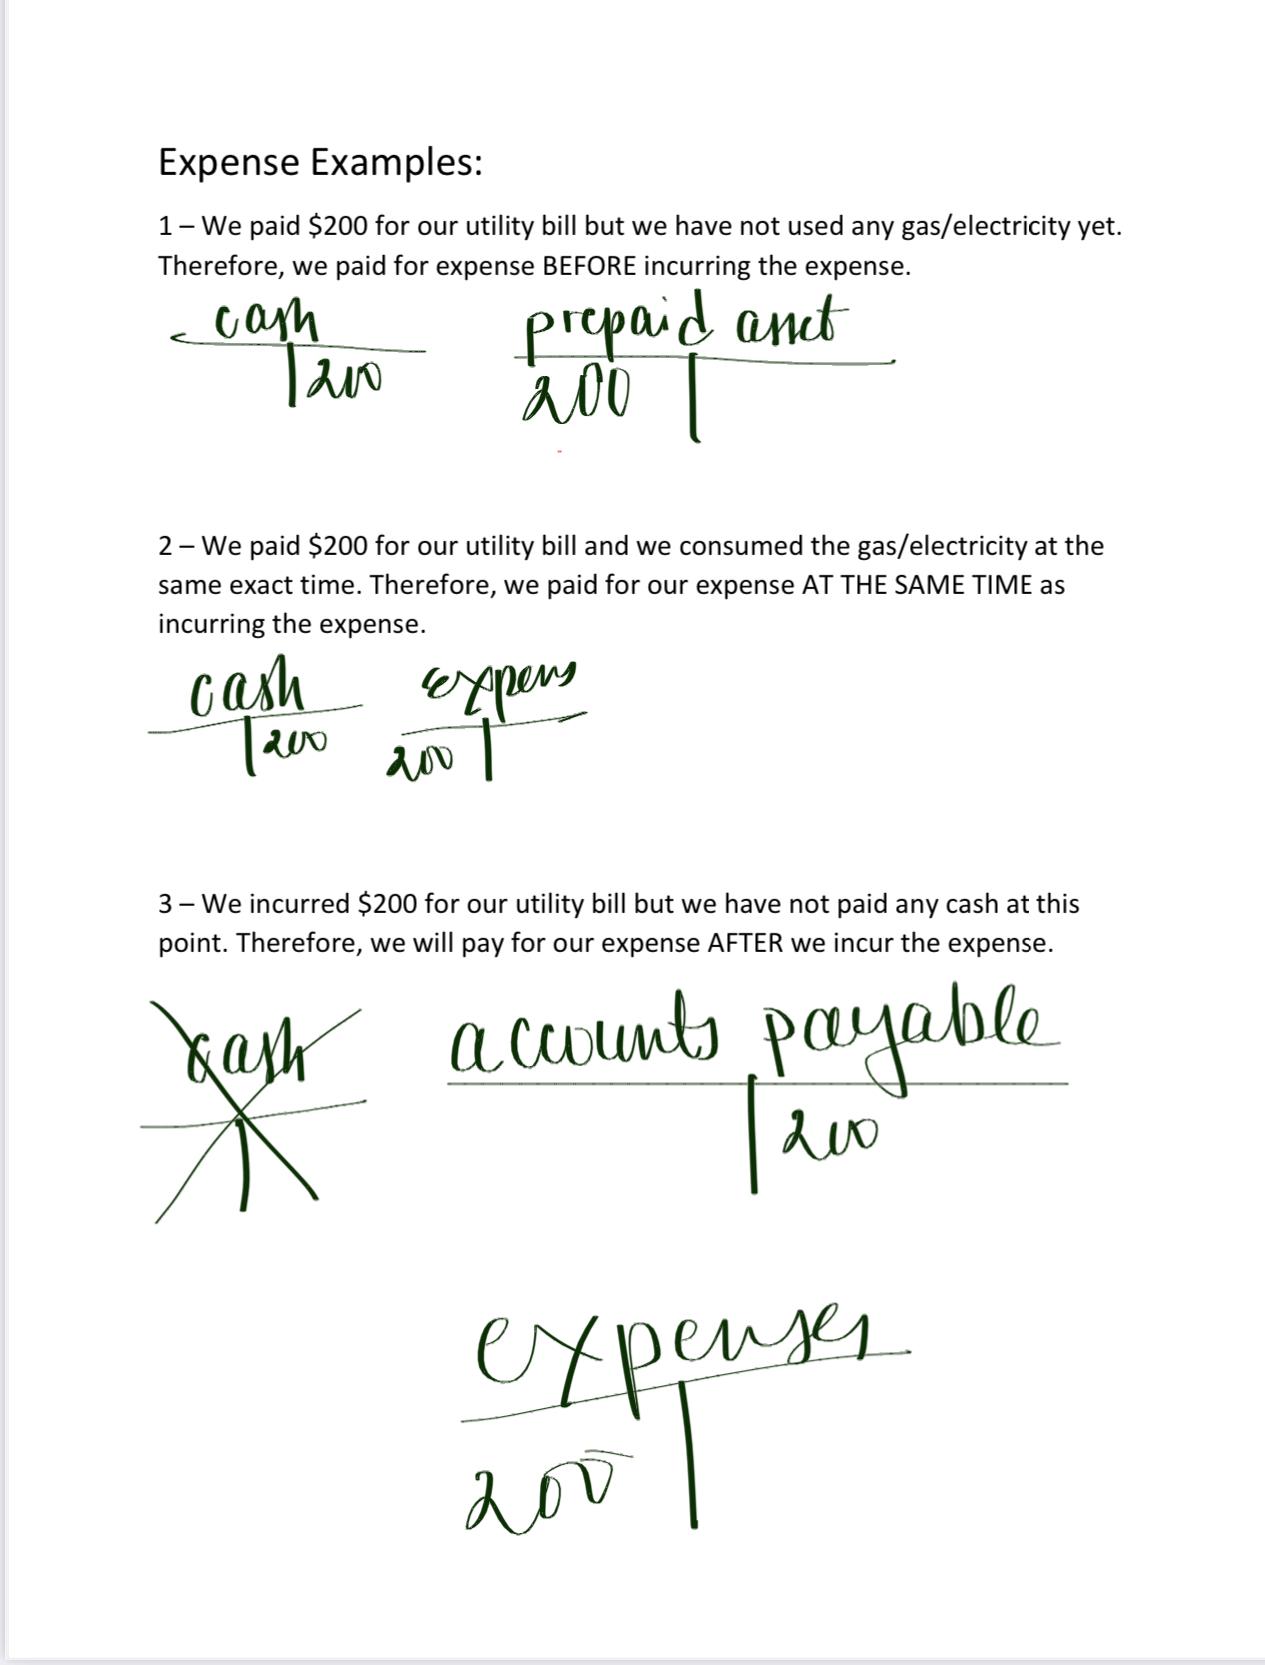 Expense Examples:
1 – We paid $200 for our utility bill but we have not used any gas/electricity yet.
Therefore, we paid for expense BEFORE incurring the expense.
cash prepaid asset
200 200
2 – We paid $200 for our utility bill and we consumed the gas/electricity at the
same exact time. Therefore, we paid for our expense AT THE SAME TIME as
incurring the expense.
cash expens
200 200
3 – We incurred $200 for our utility bill but we have not paid any cash at this
point. Therefore, we will pay for our expense AFTER we incur the expense.
cash accounts payable
200
expenses
200